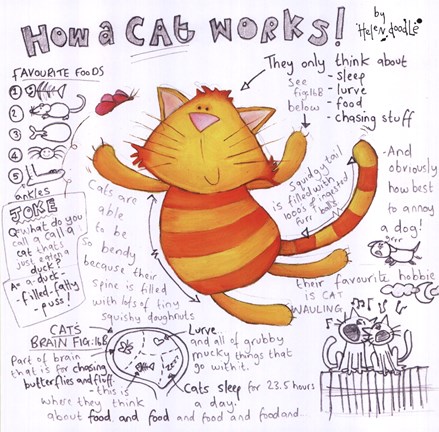 How a CAT WORKS!
by
Helen doodle
FAVOURITE FOODS
1
2
3
4
5
ankles
They only think about
- sleep
- lurve
- food
- chasing stuff
see
fig:16B
below
- And
obviously
how best
to annoy
a dog!
grrr
Squidgy tail
is filled with
1000s of knitted
furr balls
Cats are
able
to be
so bendy
because their
spine is filled
with lots of tiny
squishy doughnuts
JOKE
Q- what do you
call a call a
cat thats
just eaten a
duck?
A= a duck-
- filled-fatty
- puss!
their favourite hobbie
is CAT
WAULING
CATS
BRAIN FIG:16B
Part of brain
that is for chasing
butterflies and fluff.
- this is
where they think
about food and food and food and food and...
Lurve
and all of grubby
mucky things that
go with it.
Cats sleep for 23.5 hours
a day.